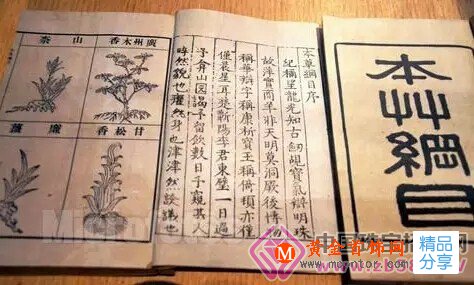 廣州木香
山柰
甘松香
廉薑
本草綱目序
紀稱望龍光知古劍覘寶氣辯明珠
故萍實商羊非天明莫洞厥後博物
稱華辯字稱康析寶玉稱倚頓亦僅
僅晨星耳楚蘄陽李君東璧一日過
予弇山園謁予留飲數日予窺其人
睟然貌也癯然身也津津然談議也
本艸綱目
中国珠宝招商网
黄金首饰网
精品
分享